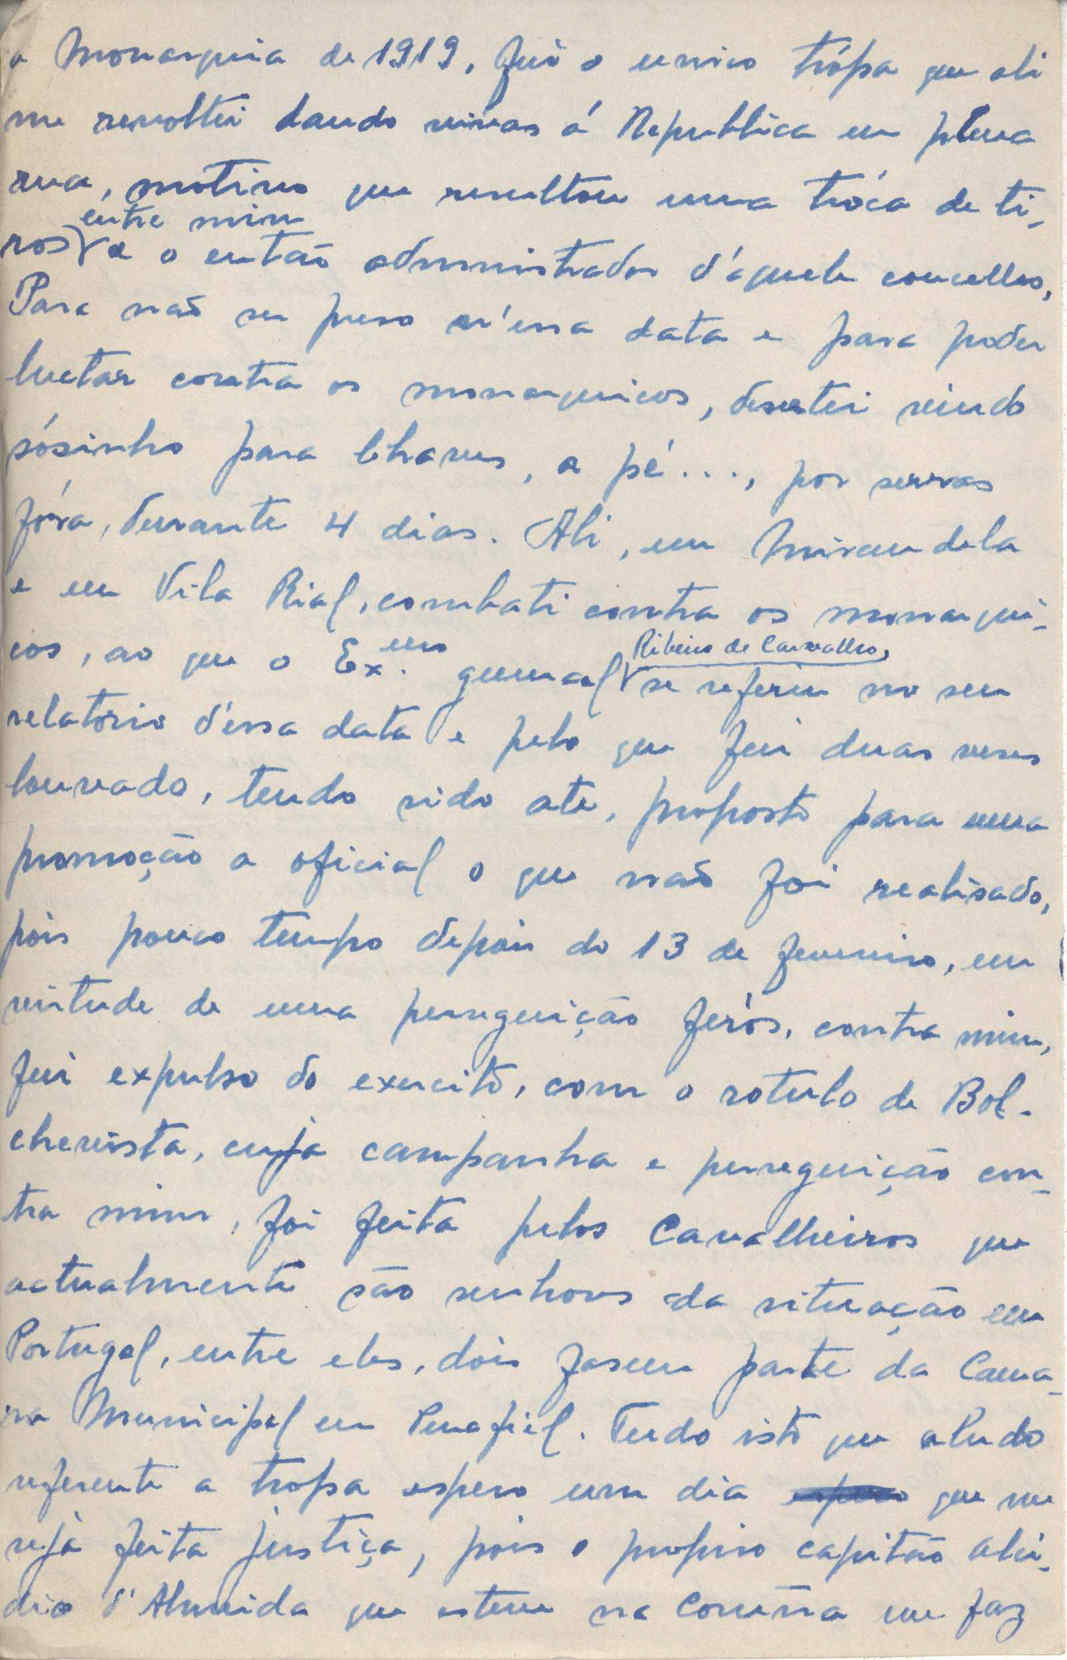 a Monarquia de 1919, fui o unico trópa que ali
me revoltei dando vivas á Republica em plena
rua, motivo que resultou uma tróca de ti-
entre mim
ros e o então administrador d'aquele concelho,
Para não ser preso n'essa data e para poder
luctar contra os monarquicos, desertei vindo
sósinho para Chaves, a pé..., por serras
fóra, durante 4 dias. Ali, em Mirandela
e em Vila Rial, combati contra os monarqui-
Ribeiro de Carvalho,
cos, ao que o Ex.mo general se referiu no seu
relatorio d'essa data e pelo que fui duas veses
louvado, tendo sido até, proposto para uma
promoção a oficial o que não foi realisado,
pois pouco tempo depois do 13 de fevereiro, em
virtude de uma perseguição ferós, contra mim,
fui expulso do exercito, com o rotulo de Bol-
chevista, cuja campanha e perseguição con-
tra mim, foi feita pelos Cavalheiros que
actualmente são senhores da situação em
Portugal, entre eles, dois fasem parte da Cama-
ra Municipal em Penafiel. Tudo isto que aludo
referente a tropa espero um dia espero que me
seja feita justiça, pois o proprio capitão Alci-
dio d'Almeida que esteve na Coruña me faz